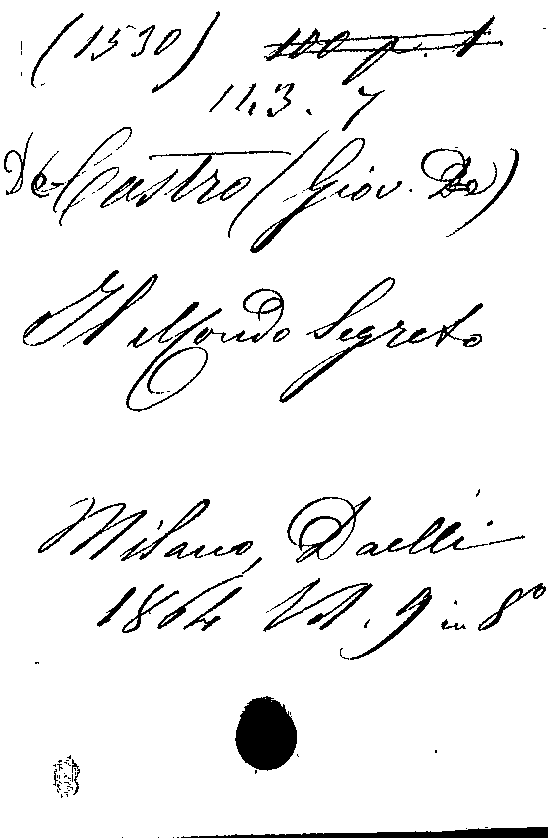 (1530) 100 p. 1
11.3.7
De Castro (Giov. De)
Il Mondo Segreto
Milano, Daelli
1864 Vol. 9 in 8º